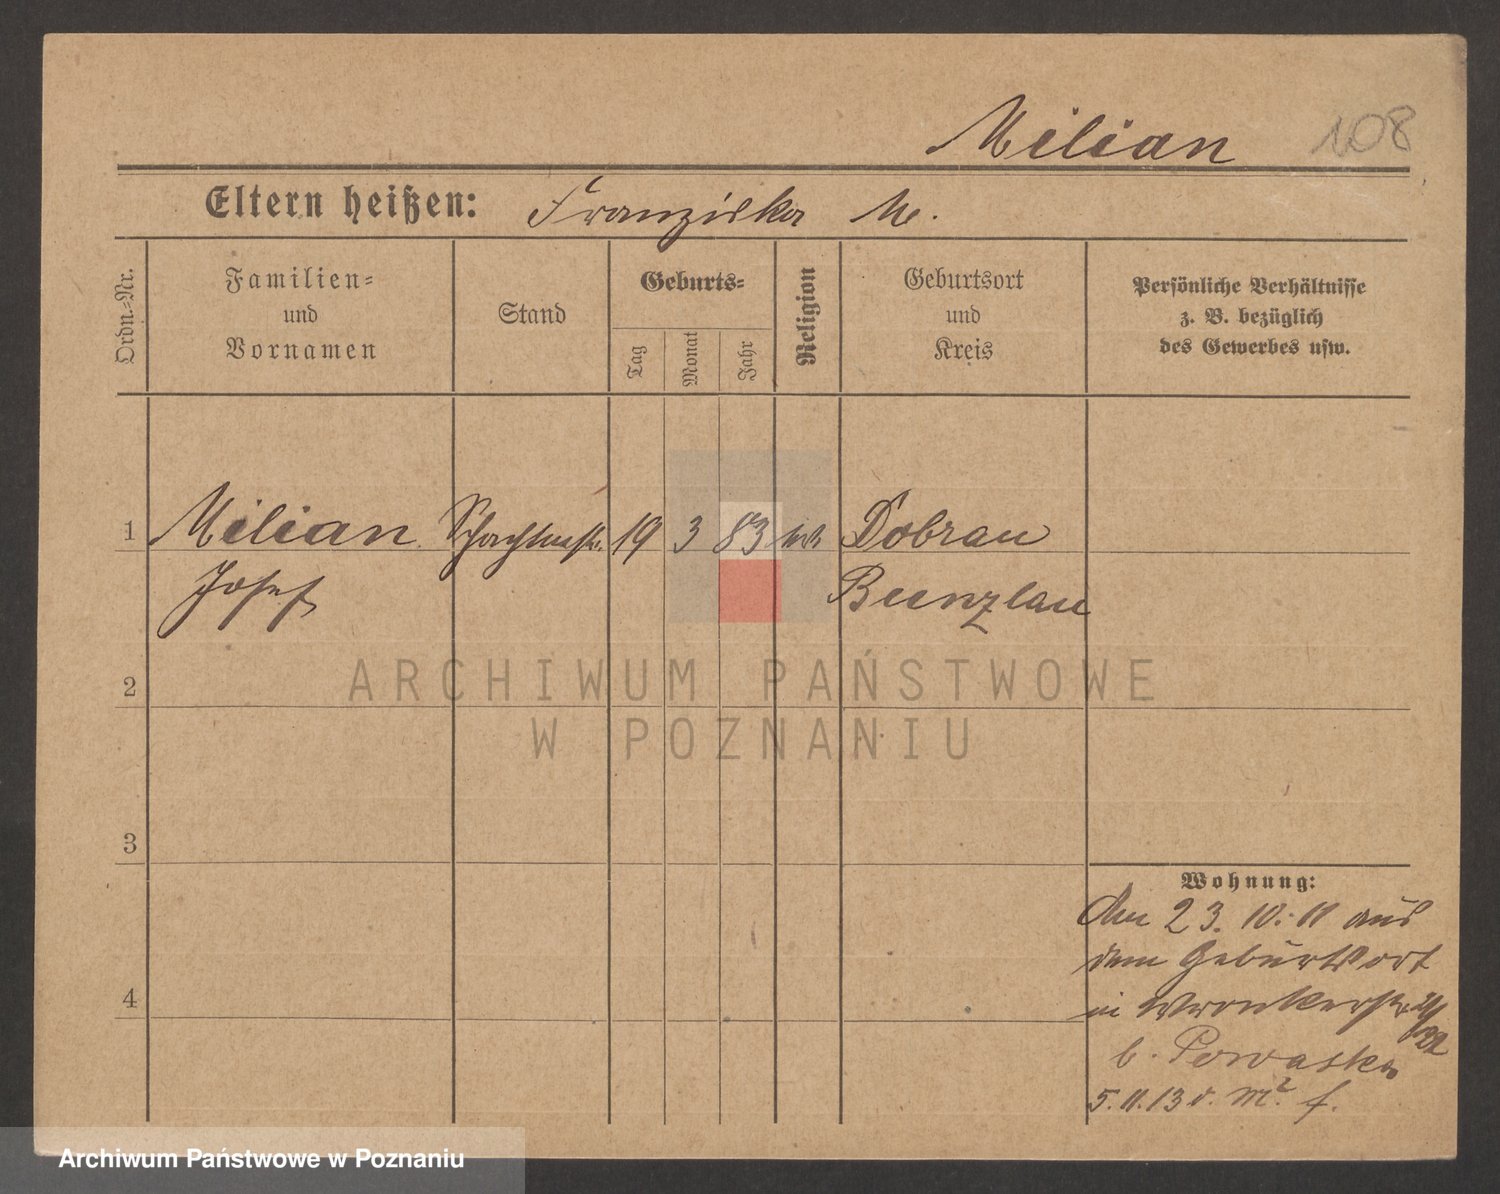 Milian 108
Eltern heißen: Franziska M.
Ordn.=Nr.
Familien=
und
Vornamen
Stand
Geburts=
Tag
Monat
Jahr
Religion
Geburtsort
und
Kreis
Persönliche Verhältnisse
z. B. bezüglich
des Gewerbes usw.
1 Milian 19 3 83 Dobrau
Josef Bunzlau
2
ARCHIWUM PAŃSTWOWE
W POZNANIU
3
4
Wohnung:
Am 23. 10. 11 aus
dem Geburtsort
in Wronkerstr
b.
5. 11. 13
Archiwum Państwowe w Poznaniu